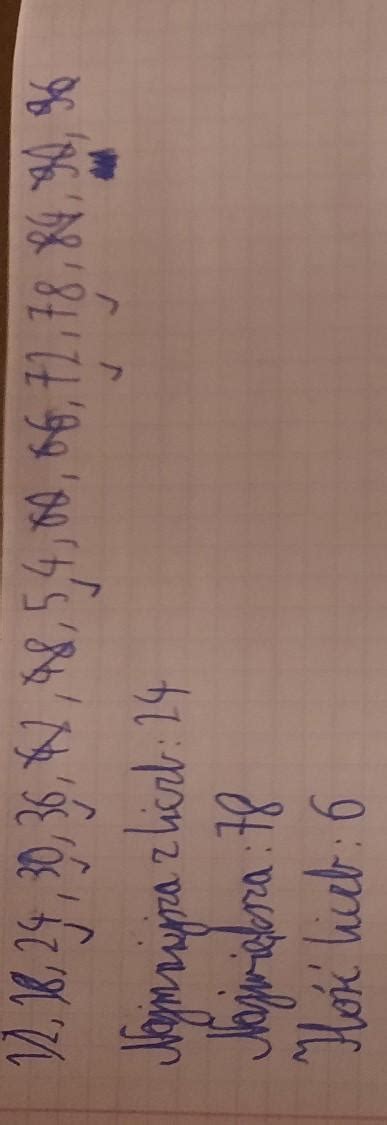 12, 18, 24, 30, 36, 42, 48, 54, 60, 66, 72, 78, 84, 90, 96
Najmniejsza z liczb: 24
Największa: 78
Ilość liczb: 6